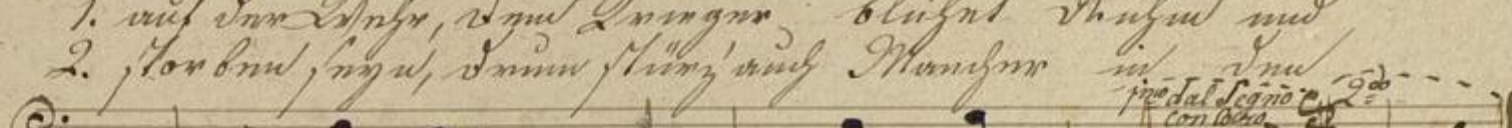 1. auf der Wehr, dem Krieger blühet Ruhm und
2. storben seyn, drum stürz' auch Mancher in den
jmo dal Segno e 2do
con Coro